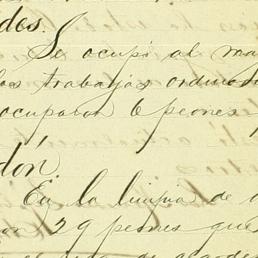 des.
Se ocupó al ma
los trabajos ordina
ocuparon 6 peones.
dón.
En la limpia de a
on 29 peones que